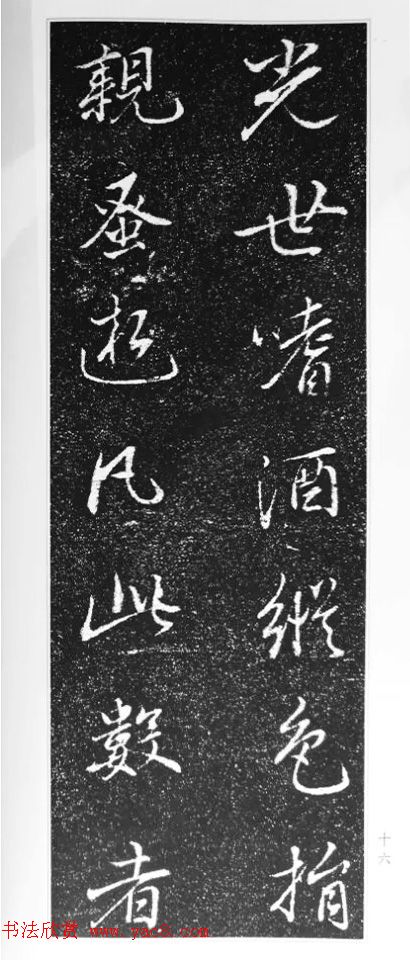 光世嗜酒縱色捐
親蚤逝凡此數者
十六
书法欣赏 www.yac8.com